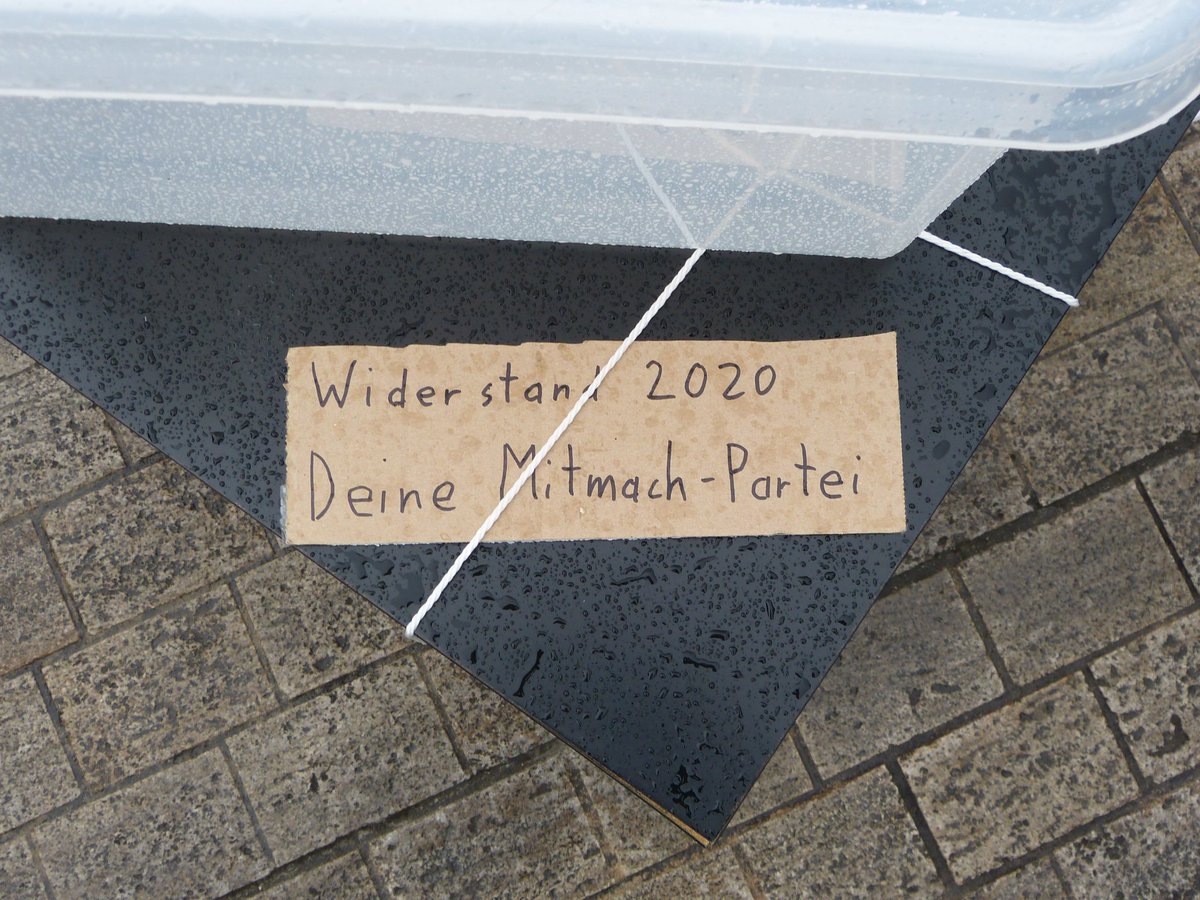 Widerstand 2020
Deine Mitmach-Partei